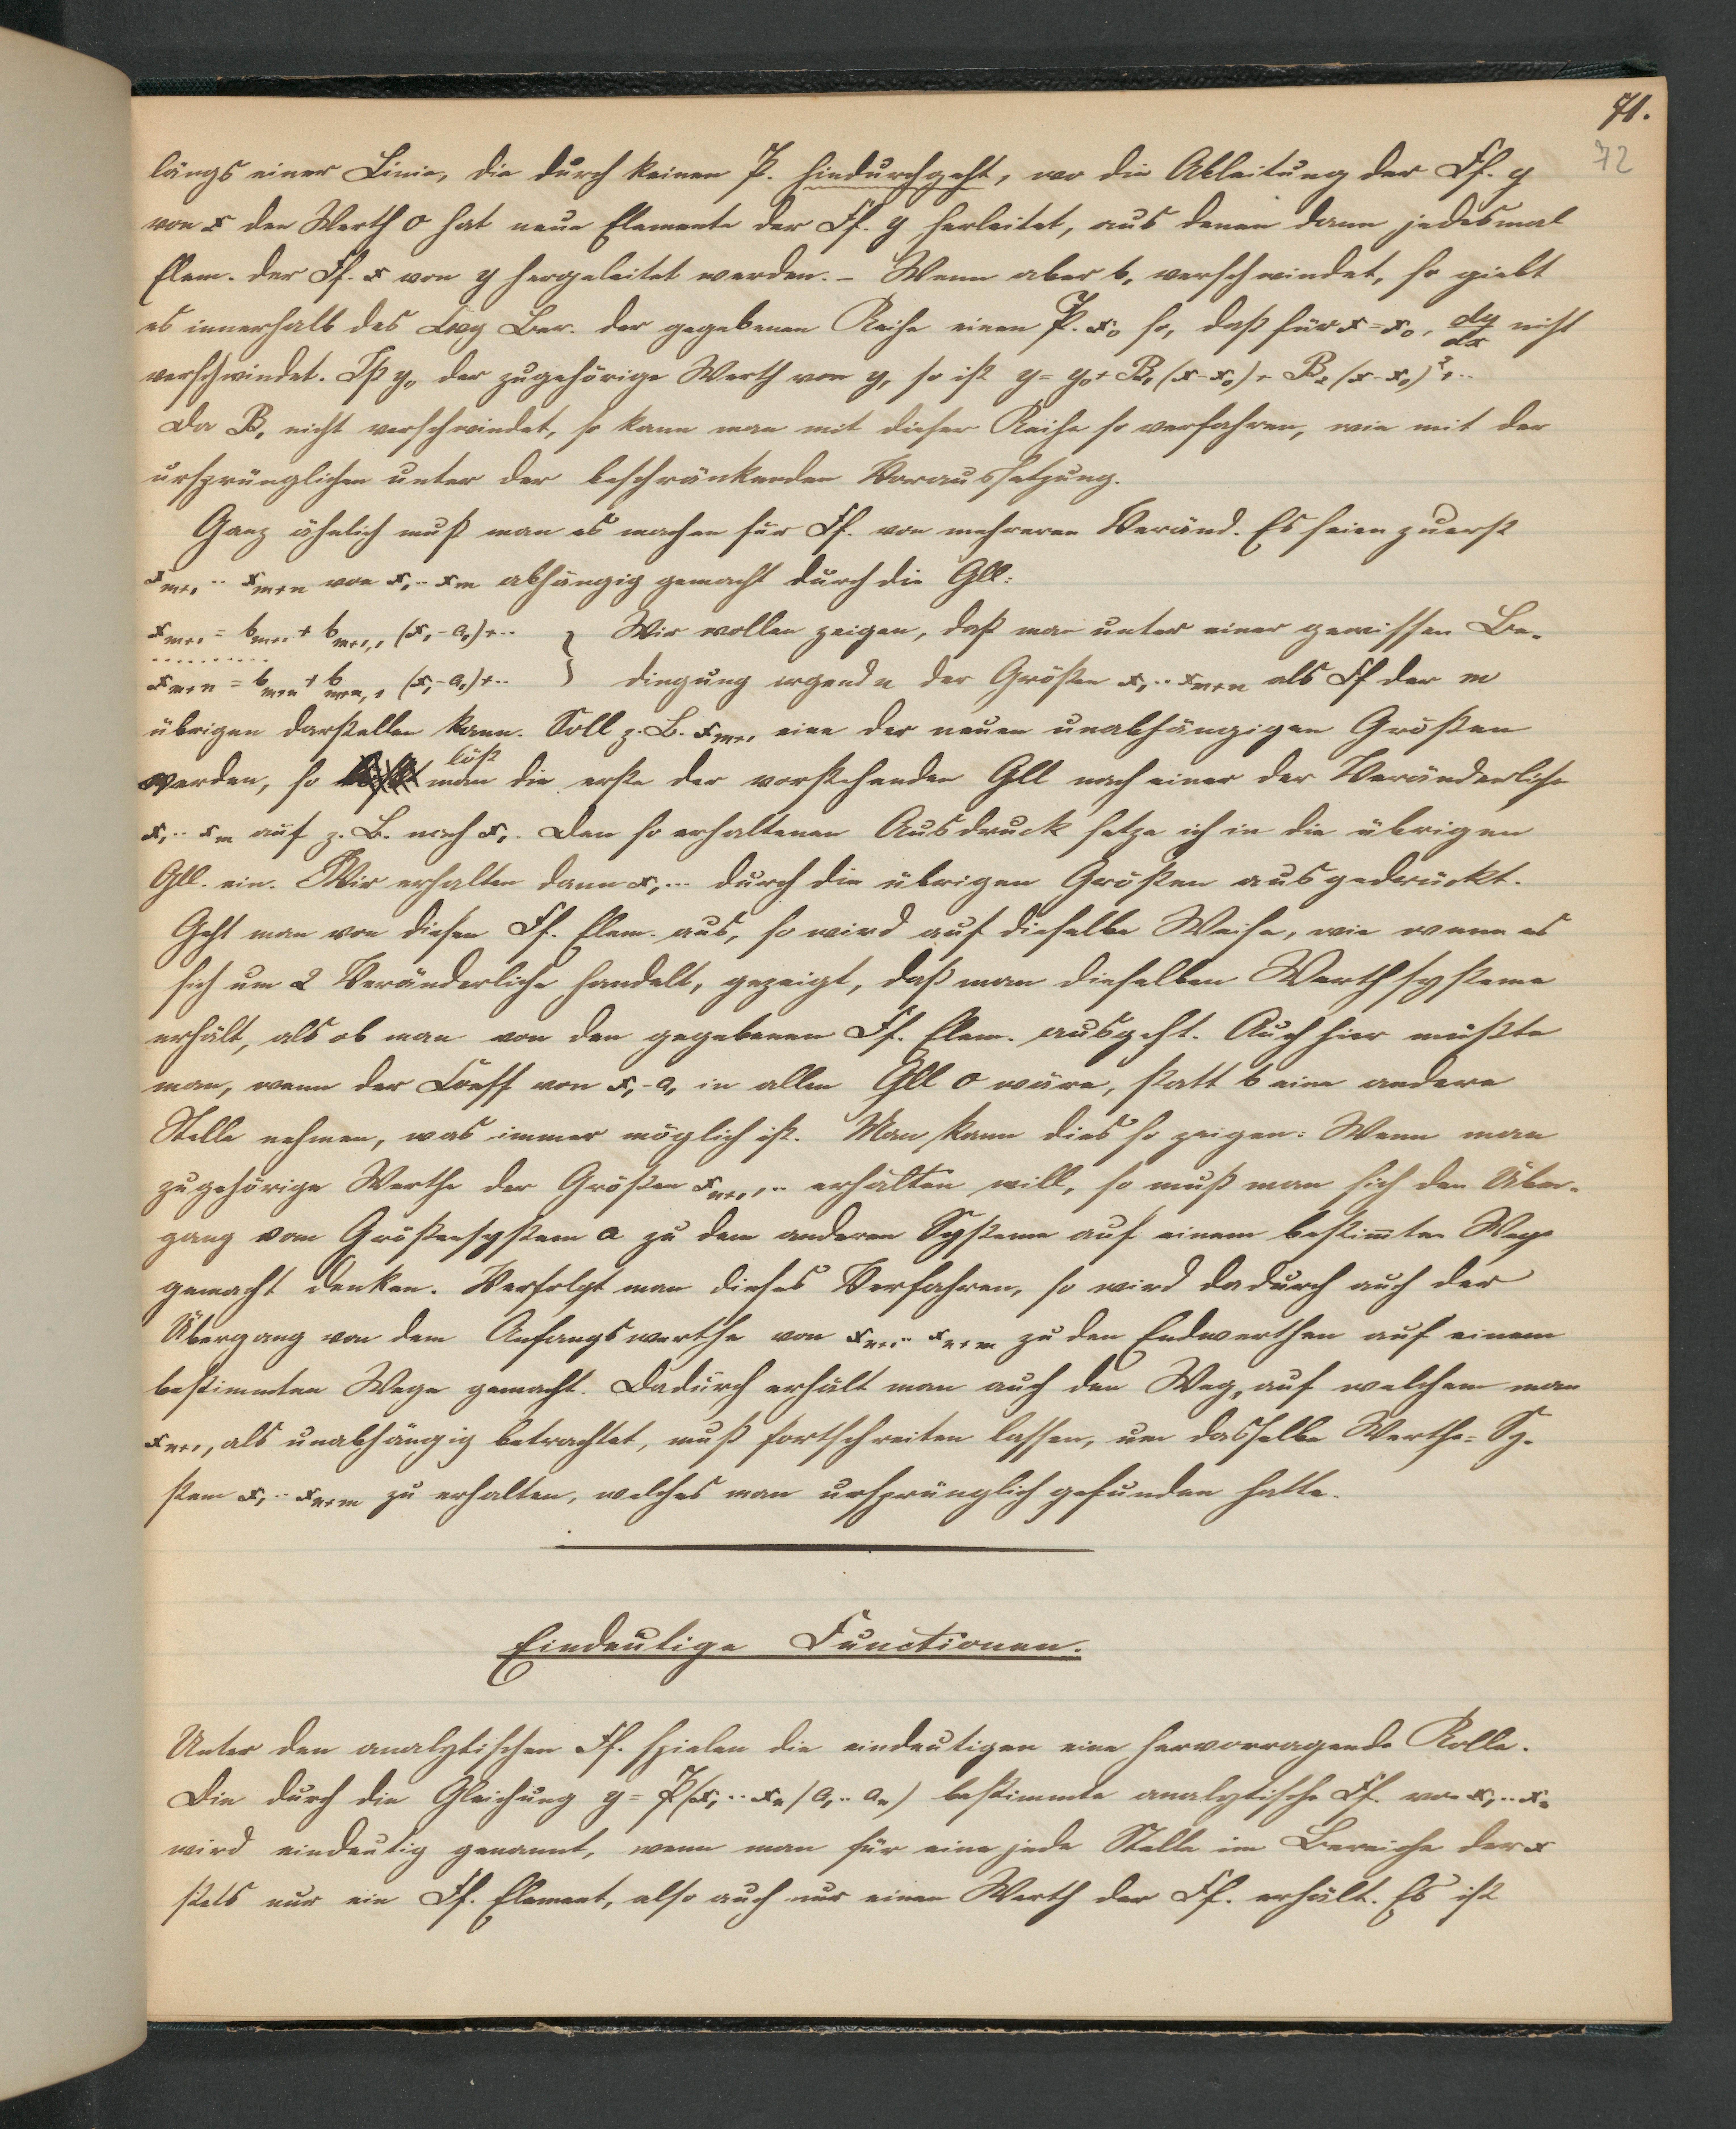 71.
72
längs einer Linie, die durch keinen P. hindurchgeht, wo die Ableitung der Ff. y
von x den Werth 0 hat neue Elemente der Ff. y herleitet, aus denen dann jedesmal
Elem. der Ff. x von y hergeleitet werden. – Wenn aber b₁ verschwindet, so giebt
es innerhalb des Cvg Ber. der gegebenen Reihe einen P. x₀ so, daß für x = x₀, dy/dx nicht
verschwindet. Ist y₀ der zugehörige Werth von y, so ist y = y₀ + B₁(x-x₀) + B₂(x-x₀)²+..
Da B₁ nicht verschwindet, so kann man mit dieser Reihe so verfahren, wie mit der
ursprünglichen unter der beschränkenden Voraussetzung.
Ganz ähnlich muß man es machen für Ff. von mehreren Veränd. Es seien zuerst
xₘ₊₁ .. xₘ₊ₙ von x₁ .. xₘ abhängig gemacht durch die Gll:
xₘ₊₁ = bₘ₊₁ + bₘ₊₁,₁ (x₁-a₁)+.. } Wir wollen zeigen, daß man unter einer gewissen Be-
..........
xₘ₊ₙ = bₘ₊ₙ + bₘ₊ₙ,₁ (x₁-a₁)+.. } dingung irgend n der Größen x₁ .. xₘ₊ₙ als Ff der m
übrigen darstellen kann. Soll z. B. xₘ₊₁ eine der neuen unabhängigen Größen
werden, so löst man die erste der vorstehenden Gll nach einer der Veränderliche
x₁ .. xₘ auf z. B. nach x₁. Den so erhaltenen Ausdruck setze ich in die übrigen
Gll. ein. Wir erhalten dann x₁ ... durch die übrigen Größen ausgedrückt.
Geht man von diesen Ff. Elem. aus, so wird auf dieselbe Weise, wie wenn es
sich um 2 Veränderliche handelt, gezeigt, daß man dieselben Werthsysteme
erhält, als ob man von den gegebenen Ff. Elem. ausgeht. Auch hier müßte
man, wenn der Coeff von x₁-a₁ in allen Gll 0 wäre, statt b eine andere
Stelle nehmen, was immer möglich ist. Man kann dies so zeigen: Wenn man
zugehörige Werthe der Größen xₘ₊₁, .. erhalten will, so muß man sich den Über-
gang vom Größensystem a zu dem anderen Systeme auf einem bestim̅ten Wege
gemacht denken. Verfolgt man dieses Verfahren, so wird dadurch auch der
Übergang von dem Anfangswerthe von xₙ₊₁ .. xₙ₊ₘ zu den Endwerthen auf einem
bestimmten Wege gemacht. Dadurch erhält man auch den Weg, auf welchem man
xₙ₊₁, als unabhängig betrachtet, muß fortschreiten lassen, um dasselbe Werthe-Sy-
stem x₁ .. xₙ₊ₘ zu erhalten, welches man ursprünglich gefunden hatte.
Eindeutige Functionen.
Unter den analytischen Ff. spielen die eindeutigen eine hervorragende Rolle.
Die durch die Gleichung y = P(x₁ .. xₙ / a₁ .. aₙ) bestimmte analytische Ff. von x₁ .. xₙ
wird eindeutig genannt, wenn man für eine jede Stelle im Bereiche der x
stets nur ein Ff. Element, also auch nur einen Werth der Ff. erhält. Es ist